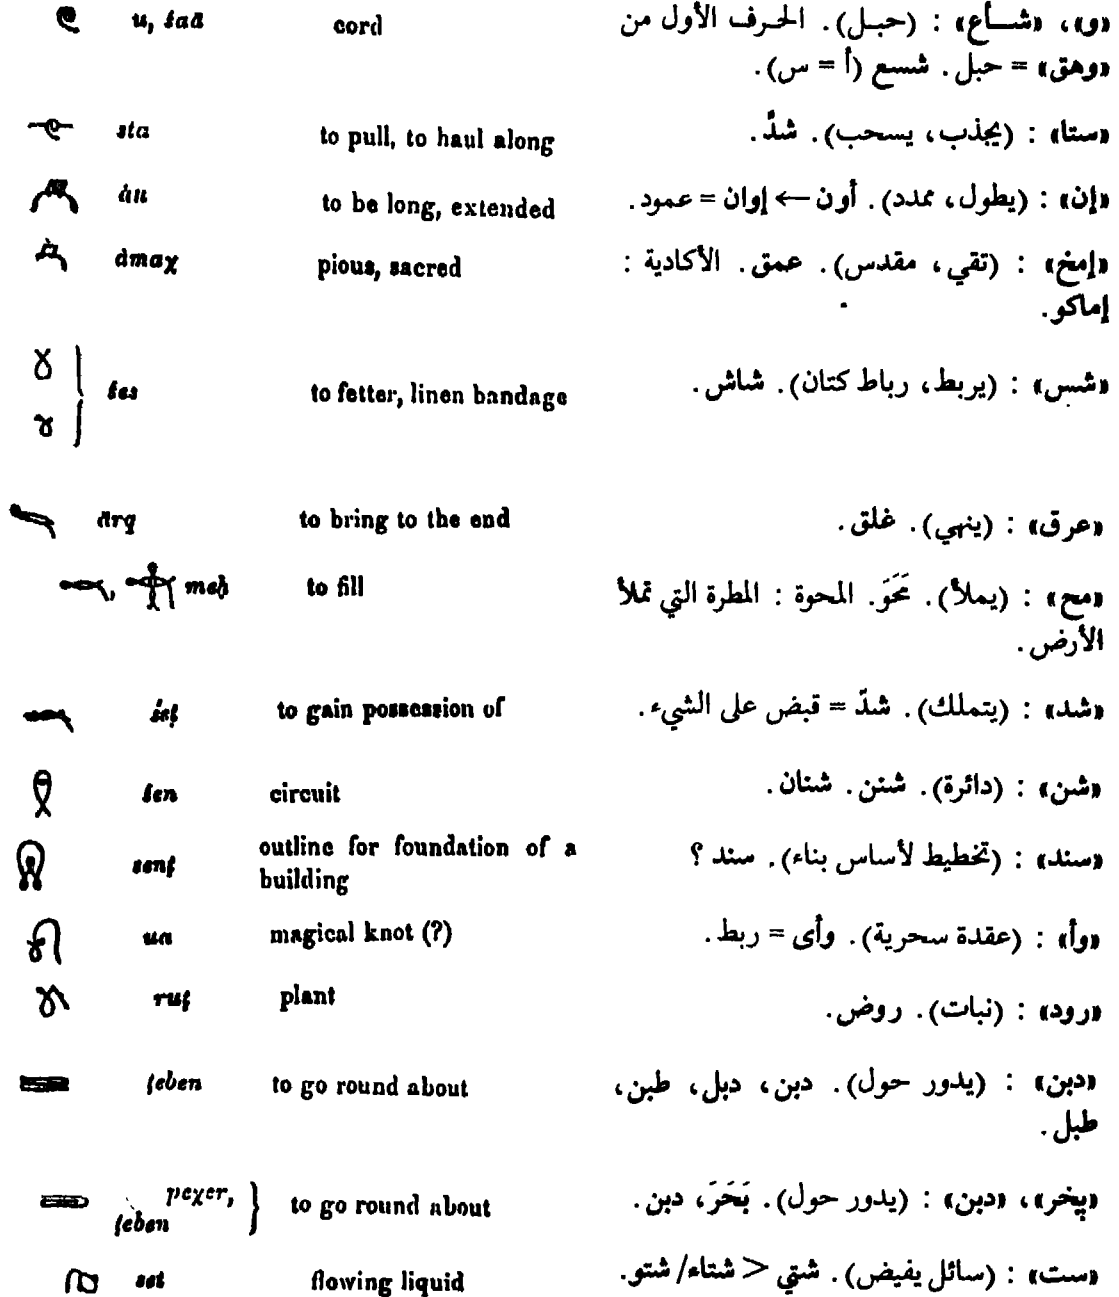 u, śaā cord «و»، «شـأع» : (حبـل). الحـرف الأول من
«وهق» = حبل. شسع (أ = س).
sta to pull, to haul along «ستا» : (يجذب، يسحب). شدّ.
àu to be long, extended «إن» : (يطول، ممدد). أون ← إوان = عمود.
àmaχ pious, sacred «إمخ» : (تقي، مقدس). عمق. الأكادية :
إماكو.
śes to fetter, linen bandage «شس» : (يربط، رباط كتان). شاش.
ārq to bring to the end «عرق» : (ينهي). غلق.
meḥ to fill «مح» : (يملأ). مَحَوَ. المحوة : المطرة التي تملأ
الأرض.
śeṭ to gain possession of «شد» : (يتملك). شدّ = قبض على الشيء.
śen circuit «شن» : (دائرة). شنن. شنان.
senṭ outline for foundation of a
building «سند» : (تخطيط لأساس بناء). سند ؟
ua magical knot (?) «وأ» : (عقدة سحرية). وأى = ربط.
ruṭ plant «رود» : (نبات). روض.
ṭeben to go round about «دبن» : (يدور حول). دبن، دبل، طبن،
طبل.
peχer,
ṭeben to go round about «پخر»، «دبن» : (يدور حول). بَحَرَ، دبن.
set flowing liquid «ست» : (سائل يفيض). شتي > شتاء/ شتو.